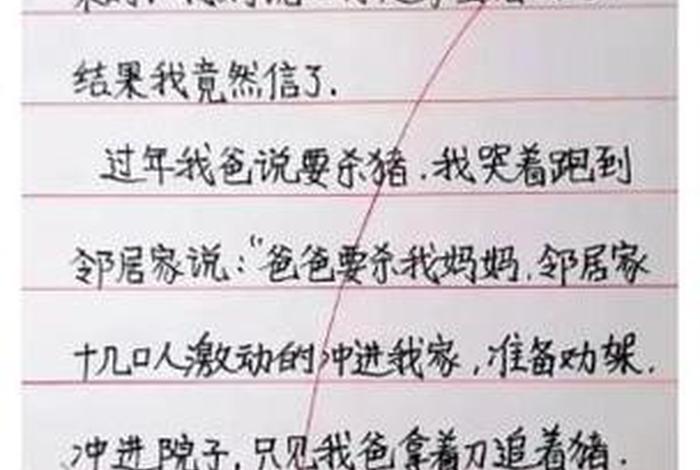 结果我竟然信了.
过年我爸说要杀猪.我哭着跑到
邻居家说:“爸爸要杀我妈妈.邻居家
十几口人激动的冲进我家,准备劝架.
冲进院子,只见我爸拿着刀追着猪.